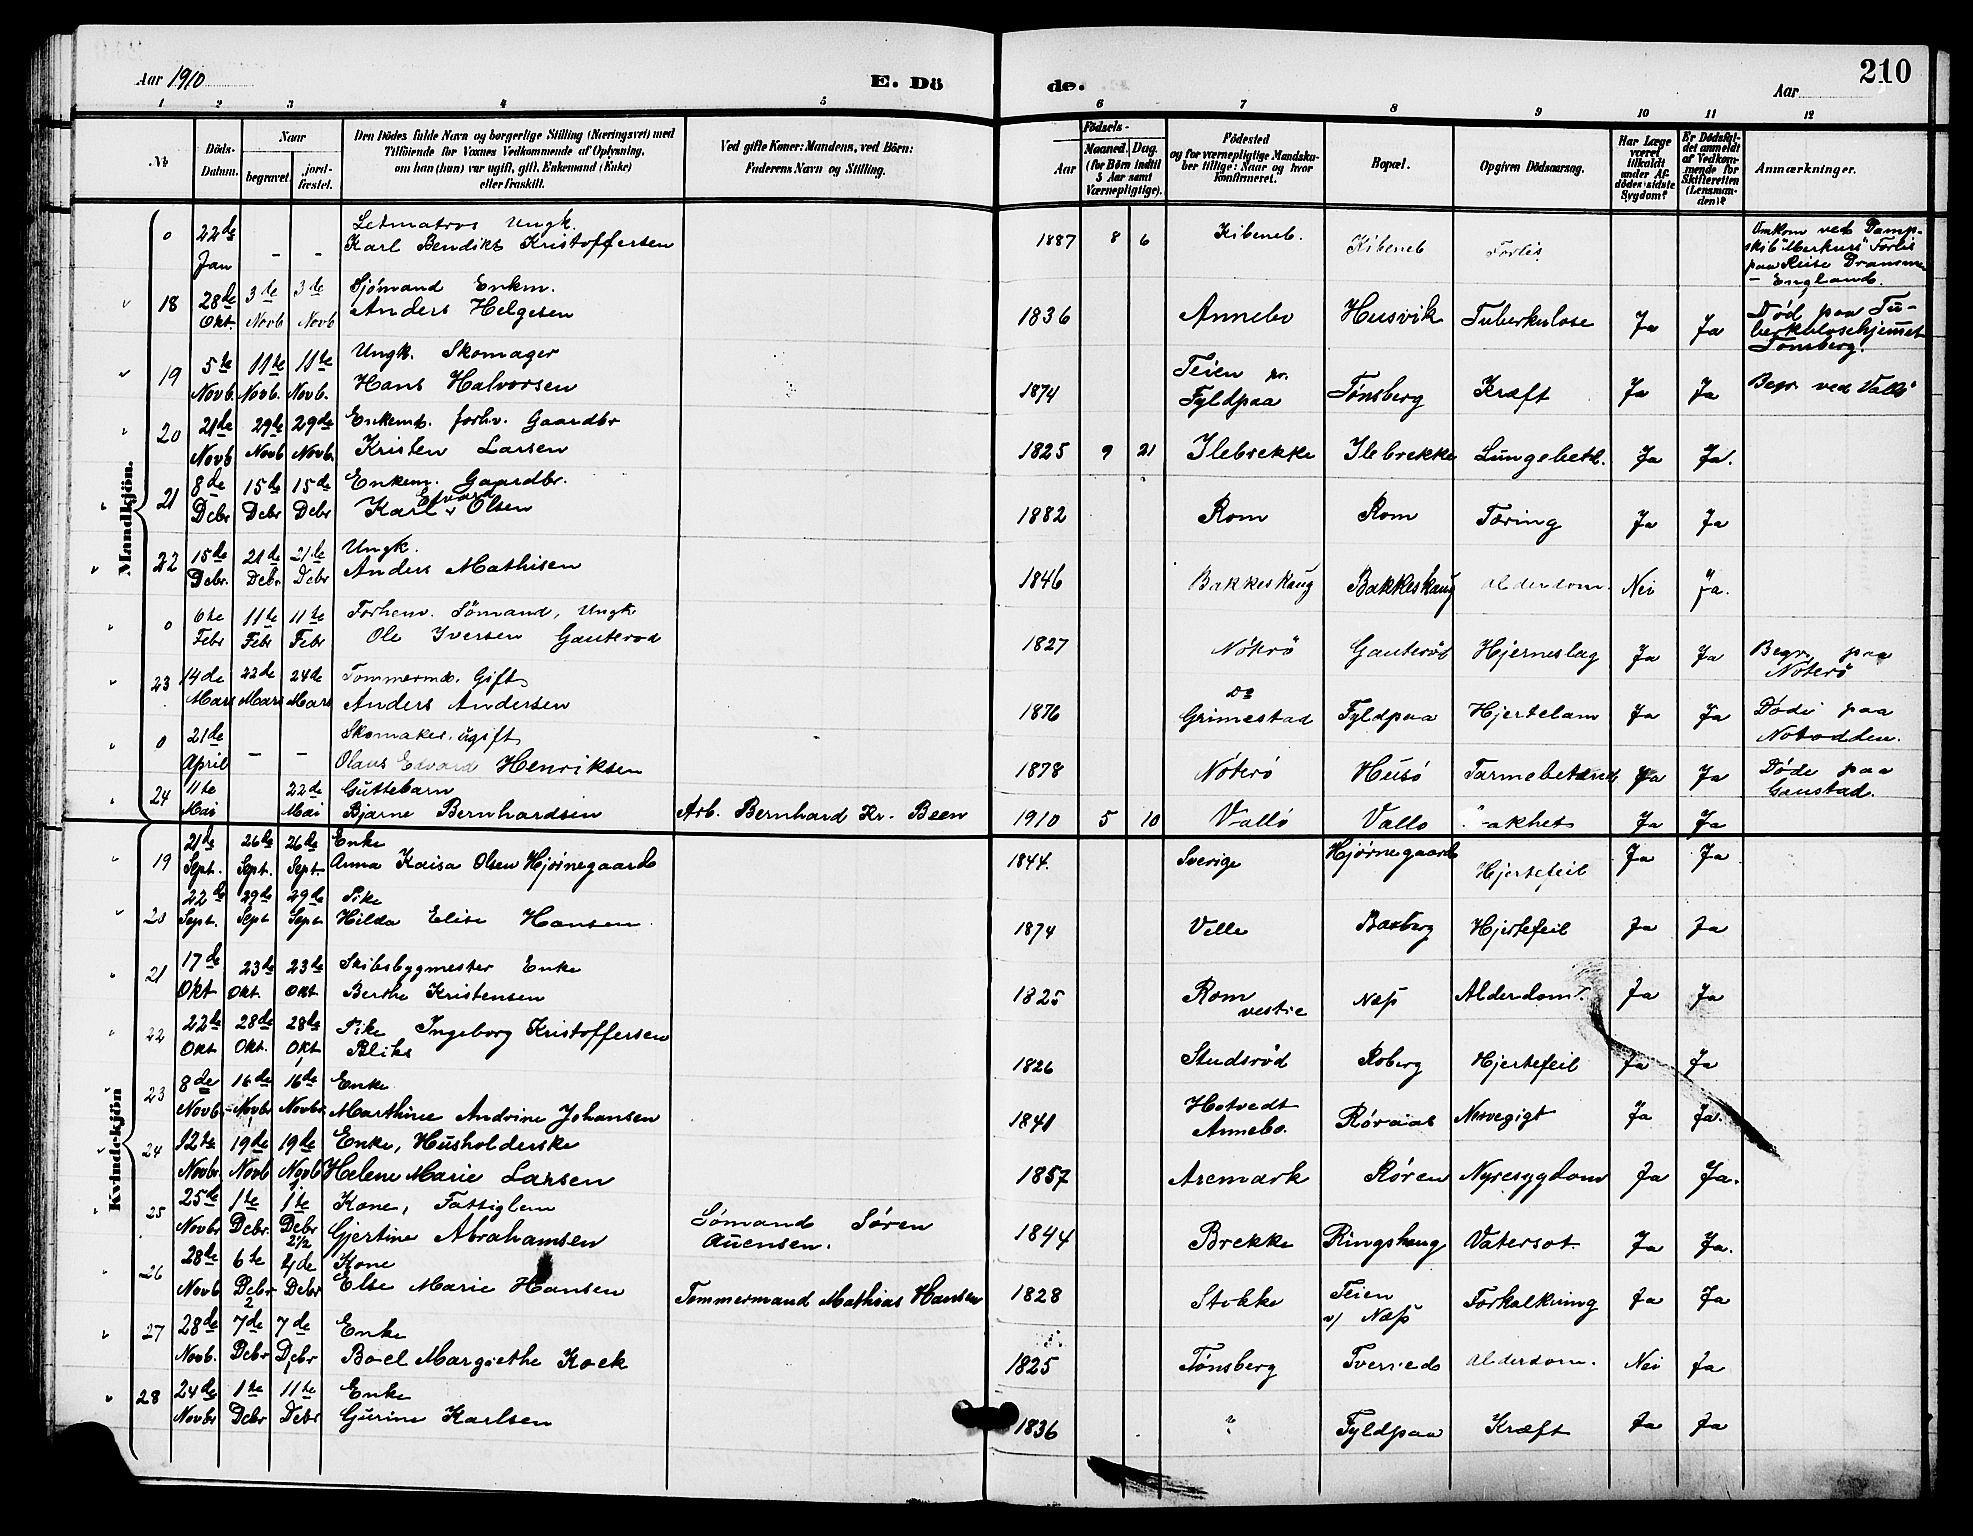 Aar 1910
E. Dö
de.
Aar
210
1 2 3 4 5 6 7 8 9 10 11 12
No
Döds-Datum.
Naar
begravet. jord-fæstet.
Den Dödes fulde Navn og borgerlige Stilling (Næringsvei) med
Tilföiende for Voxnes Vedkommende af Oplysning,
om han (hun) var ugift, gift, Enkemand (Enke)
eller fraskilt.
Ved gifte Koner: Mandens, ved Börn:
Faderens Navn og Stilling.
Födsels-
Aar
Maaned. Dag.
(for Börn indtil
5 Aar samt
Værnepligtige).
Födested
og for værnepligtige Mandska-
ber tillige: Naar og hvor
konfirmeret.
Bopæl.
Opgiven Dödsaarsag.
Har Læge
været
tilkaldt
under Af-
dödes sidste
Sygdom?
Er Dödsfal-
det anmeldt
af Vedkom-
mende for
Skifteretten
(Lensman-
den)?
Anmærkninger.
Mandkjön.
0 22de Jan - - Letmatros Ungk. Karl Bendikt Kristoffersen 1887 8 6 Kibeneb. Kibeneb Forlis Omkom ved Damp-skib "Merkurs" Forlis paa Reise Drammen - England.
18 28de Okt. 3de Novb 3de Novb Sjömand Enkm. Anders Helgesen 1836 Annebo Husvik Tuberkulose Ja Ja Död paa Tu-berkulosehjemmet Tønsberg.
19 5te Novb. 11te Novb. 11te Novb. Ungk. Skomager Hans Halvorsen 1874 Teien pr. Fyldpaa Tønsberg Kræft Ja Ja Begr. ved Vallö
20 21de Novb 29de Novb 29de Novb. Enkemd. forhv. Gaardbr Kristen Larsen 1825 9 21 Ilebrekke Ilebrekke Lungebet. Ja Ja.
21 8de Debr 15de Debr 15de Debr Enkem. Gaardbr. Karl Edvard Olsen 1882 Rom Rom Tæring Ja Ja
22 15de Debr. 21de Debr 21de Debr Ungk. Anders Mathisen 1846 Bakkeskaug Bakkeskaug Alderdom. Nei Ja.
0 6te Febr 11te Febr 11te Febr Forhenv. Sömand, Ungk Ole Iversen Gauterød 1827 Nöterö Gauteröd Hjerneslag Ja Ja Begr. paa Noterö
23 14de Mars 22de Mars 24de Mars Tømmermd. Gift Anders Andersen 1876 do Grimestad Fyldpaa Hjertelam Ja Ja Døde paa Notodden.
0 21de April - - Skomaker, ugift Olaus Edvard Henriksen 1878 Nøterø Husø Tarmebetænd Ja Ja Døde paa Gaustad.
24 11te Mai 22de Mai Guttebarn Bjarne Bernhardsen Arb. Bernhard Kr. Been 1910 5 10 Vallø Vallø akhet Ja Ja
Kvindekjön
19 21de Sept. 26de Sept. 26de Sept. Enke Anna Kaisa Olsen Hjørnegaard 1844. Sverige Hjørnegaard Hjertefeil Ja Ja
20 22de Sept. 29de Sept 29de Sept Pike Hilda Elise Hansen. 1874 Velle Basberg Hjertefeil Ja Ja
21 17de Okt 23de Okt. 23de Okt Skibsbygmester Enke Berthe Kristensen 1825 Rom vestre Næs Alderdom. Ja Ja
22 22de Okt 28de Okt. 28de Okt Pike Ingeborg Kristoffersen Bliks 1826 Studsrød Roberg Hjertefeil Ja Ja
23 8de Novb. 16de Novbr 16de Novbr. Enke Marthine Andrine Johansen 1841 Hotvedt Annebo. Röraas Nervegigt Ja Ja.
24 12te Novbr. 19de Novb 19de Novb Enke, Husholderske Helene Marie Larsen 1857 Aremark Røren Nyresygdom Ja Ja.
25 25de Novbr 1te Debr. 1te Debr Kone, Fattiglem Gjertine Abrahamsen Sømand Søren Auensen. 1844 Brekke Ringshaug Vatersot. Ja Ja.
26 28de Novb 6te Debr 4de Debr Kone Else Marie Hansen Tømmermand Mathias Hansen 1828 Stokke Teien v/ Næs Forkalkning Ja Ja
27 28de Novb. 7de Debr 7de Debr Enke Boel Margrethe Kock 1825 Tønsberg Tverved Alderdom. Nei Ja
28 24de Novbr 1te Debr 11te Debr Enke Gurine Karlsen 1836 " Fyldpaa Kræft Ja Ja